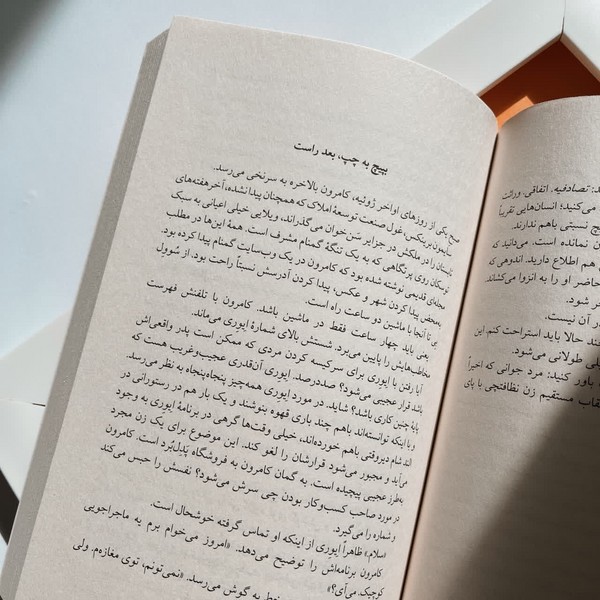 بپیچ به چپ، بعد راست
صبح یکی از روزهای اواخر ژوئیه، کامرون بالاخره به سرنخی می‌رسد.
سایمون برینکس، غول صنعت توسعهٔ املاک که همچنان پیدا نشده، آخر هفته‌های
تابستان را در ملکش در جزایر سَن‌خوان می‌گذراند، ویلایی خیلی اعیانی به سبک
توسکان روی پرتگاهی که به یک تنگهٔ گمنام مشرف است. همهٔ این‌ها در مطلب
مجله‌ای قدیمی نوشته شده بود که کامرون در یک وب‌سایت گمنام پیدا کرده بود.
به‌محض پیدا کردن شهر و عکس، پیدا کردن آدرسش نسبتاً راحت بود. از سُوول
بِی تا آنجا با ماشین دو ساعت راه است.
یعنی باید چهار ساعت فقط در ماشین باشد. کامرون با تلفنش فهرست
مخاطب‌هایش را پایین می‌برد. شستش بالای شمارهٔ ایوری می‌ماند.
آیا رفتن با ایوری برای سرکیسه کردن مردی که ممکن است پدر واقعی‌اش
باشد قرار عجیبی می‌شود؟ صددرصد. ایوری آن‌قدری عجیب‌وغریب هست که
پایهٔ چنین کاری باشد؟ شاید. در مورد ایوری همه‌چیز پنجاه‌پنجاه به نظر می‌رسد.
با اینکه توانسته‌اند باهم چند باری قهوه بنوشند و یک بار هم در رستورانی در
الند شام دیروقتی باهم خورده‌اند، خیلی وقت‌ها گرهی در برنامهٔ ایوری به وجود
می‌آید و مجبور می‌شود قرارشان را لغو کند. این موضوع برای یک زن مجرد
به‌طرز عجیبی پیچیده است. به گمان کامرون به فروشگاه پَدل‌بُرد است. کامرون
در مورد صاحب کسب‌وکار بودن چی سرش می‌شود؟ نفسش را حبس می‌کند
و شماره را می‌گیرد.
«سلام.» ظاهراً ایوری از اینکه او تماس گرفته خوشحال است.
کامرون برنامه‌اش را توضیح می‌دهد. «امروز می‌خوام برم به ماجراجویی
کوچیک. می‌آی؟»
خط به گوش می‌رسد. «نمی‌تونم. توی مغازه‌م. ولی
تصادفیه. اتفاقی. وراثت
می‌کنید؛ انسان‌هایی تقریباً
نسبتی باهم ندارند.
نمانده است. می‌دانید که
هم اطلاع دارید. اندوهی که
حاضر او را به انزوا می‌کشاند
شود.
در آن نیست.
حالا باید استراحت کنم. این
طولانی می‌شود.
باور کنید: مرد جوانی که اخیراً
مستقیم زن نظافتچی با پای